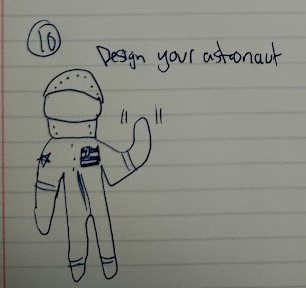 10
Design your astronaut